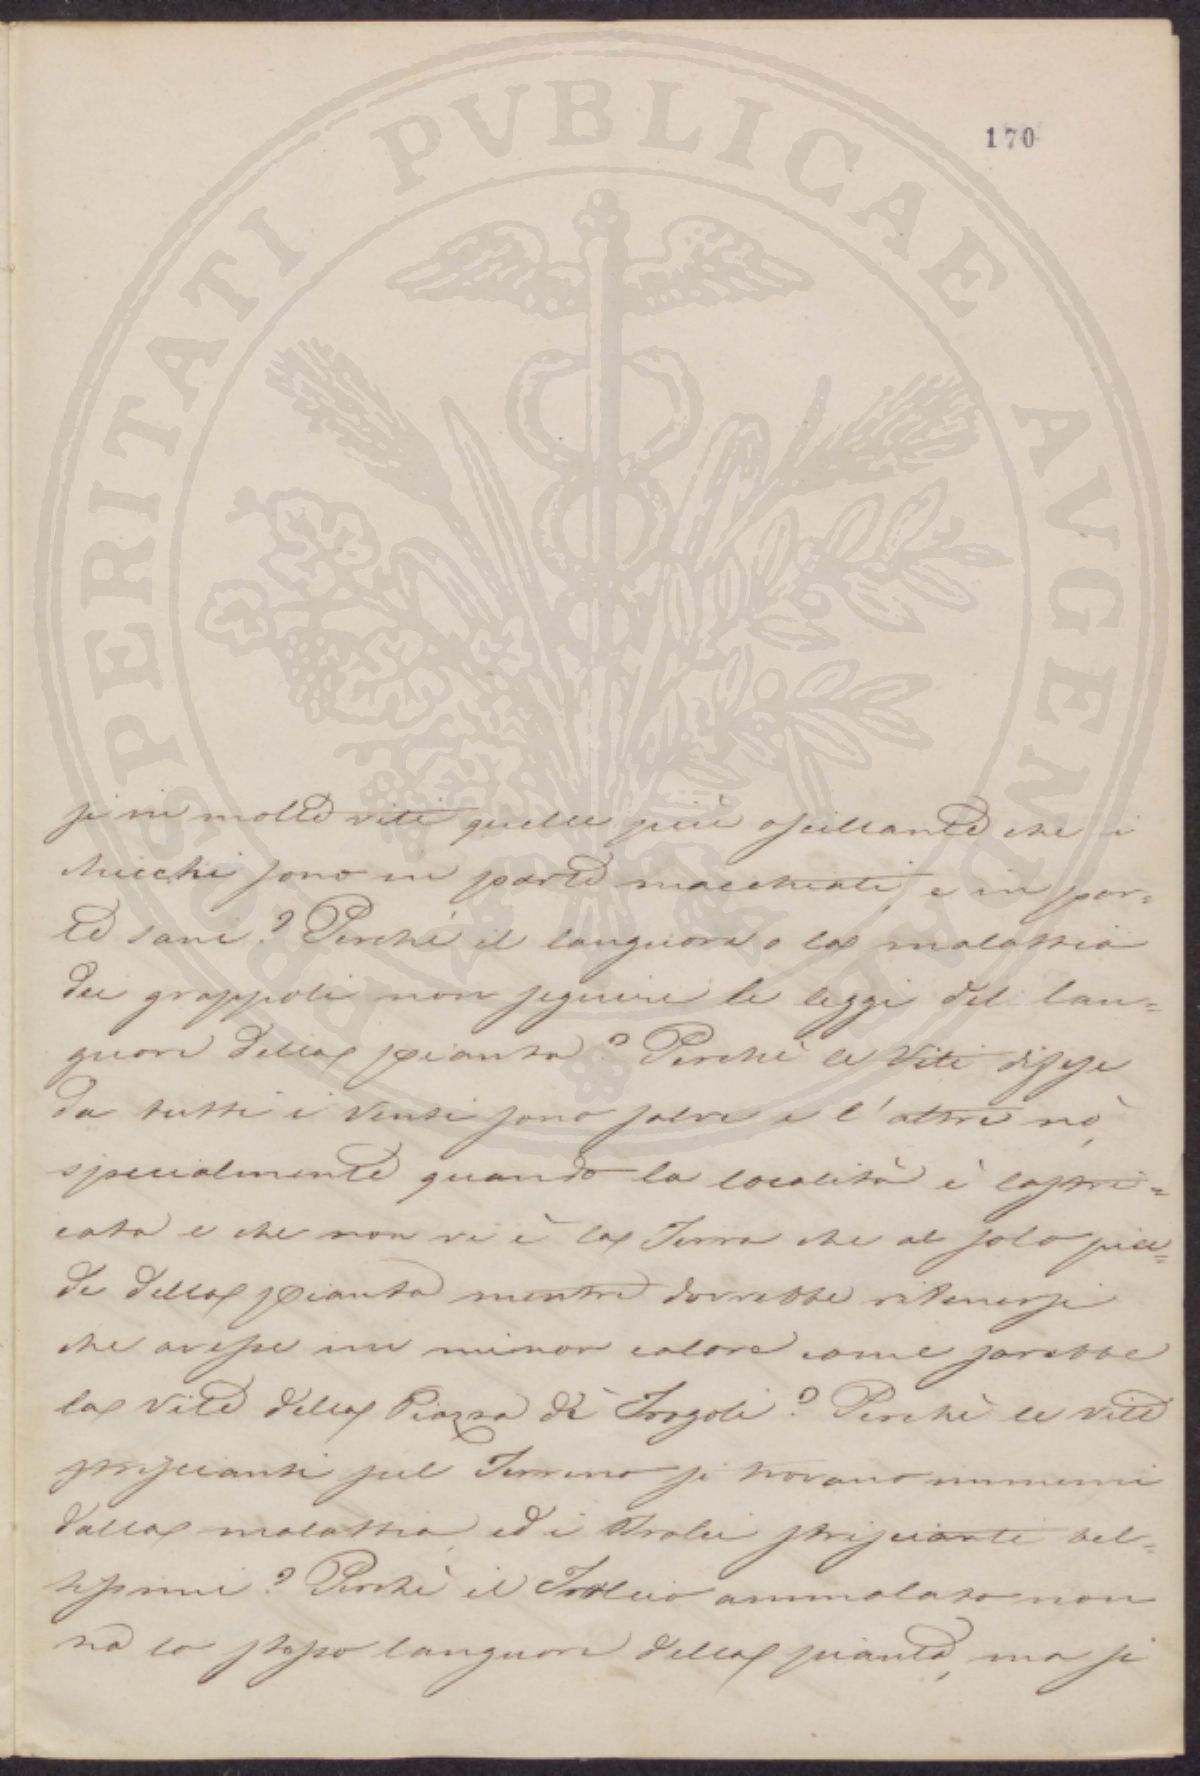 170
PROSPERITATI PUBLICAE AUGENDAE
si in molte viti quelle più oscillante che i
chicchi sono in parte macchiati, e in par=
te sani? Perchè il languore o la malattia
dei grappoli non seguire le leggi del lan=
guore della pianta? Perchè le Viti difese
da tutti i Venti sono salve e l'altre nò,
specialmente quando la località è lastri=
cata e che non vi è la Terra che al solo pie=
de della pianta mentre dovrebbe ritenersi
che avesse un minor calore come sarebbe
la Vite della Piazza di Fragoli? Perchè le vite
striscianti sul Terreno si trovano immuni
dalla malattia, ed i Tralci striscianti bel=
lissimi? Perchè il Tralcio ammalato non
ha lo stesso languore della pianta, ma si